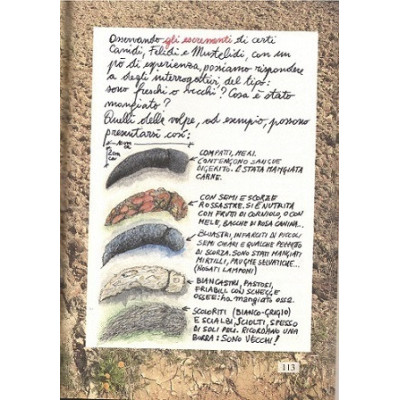 Osservando gli escrementi di certi
Canidi, Felidi e Mustelidi, con un
pò di esperienza, possiamo rispondere
a degli interrogativi del tipo:
sono freschi o vecchi? Cosa è stato
mangiato?
Quelli della volpe, ad esempio, possono
presentarsi così:
COMPATTI, NERI.
CONTENGONO SANGUE
DIGERITO. È STATA MANGIATA
CARNE.
CON SEMI E SCORZE
ROSSASTRE. SI È NUTRITA
CON FRUTTI DI CORNIOLO, O CON
MELE, BACCHE DI ROSA CANINA...
BLUASTRI, INFARCITI DI PICCOLI
SEMI CHIARI E QUALCHE PEZZETTO
DI SCORZA. SONO STATI MANGIATI
MIRTILLI, PRUGNE SELVATICHE...
LAMPONI)
BIANCASTRI, PASTOSI,
FRIABILI CON SCHEGGE
OSSEE: ha mangiato ossa.
SCOLORITI (BIANCO-GRIGIO)
E SCIALBI, SCIOLTI, SPESSO
DI SOLI PELI. RICORDANO UNA
BORRA: SONO VECCHI!
113